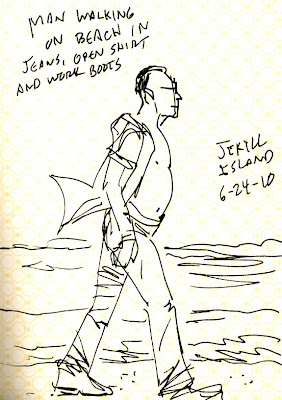 MAN WALKING
ON BEACH IN
JEANS, OPEN SHIRT
AND WORK BOOTS
JEKILL
ISLAND
6-24-10